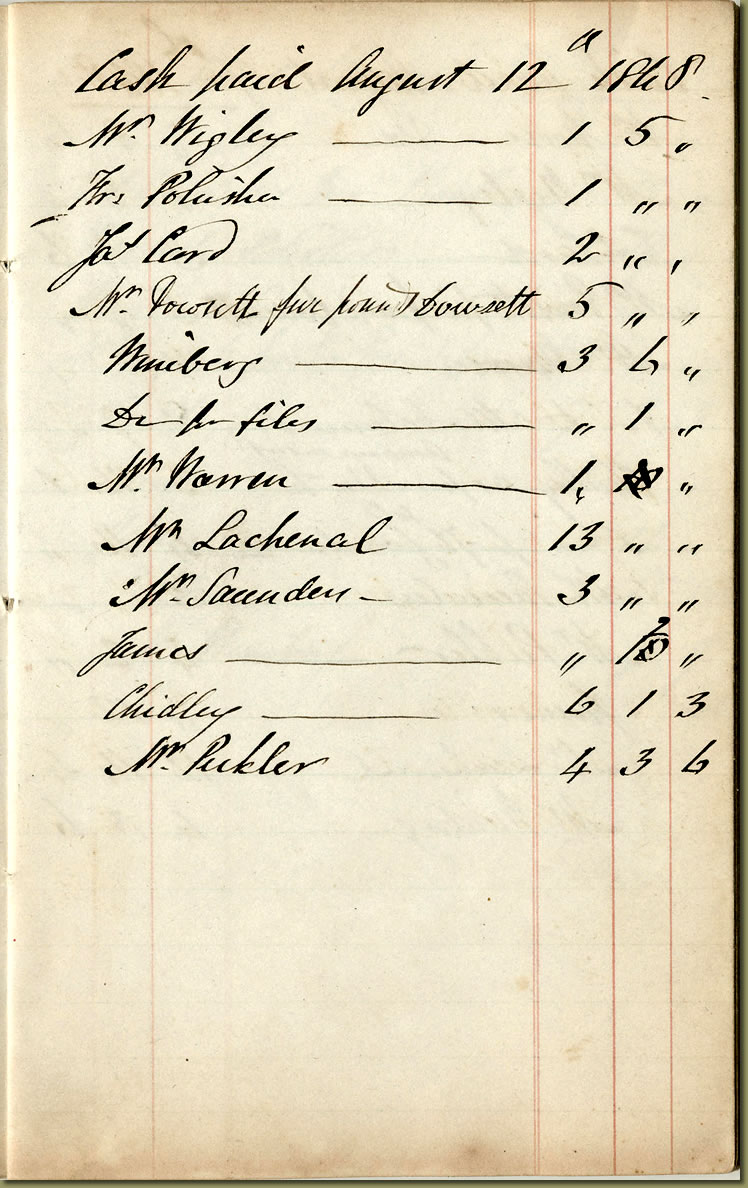 Cash paid August 12 " 1848.
Mr. Wigley 1 5 "
Frs Polisher 1 " "
Jas Card 2 " "
Mr. Dowsett five pounds Dowsett 5 " "
Wimberg 3 6 "
Do for files " 1 "
Mr. Warren 1 "
Mr Lachenal 13 " "
Mr Saunders 3 " "
James " "
Chidley 6 1 3
Mr. Pickler 4 3 6